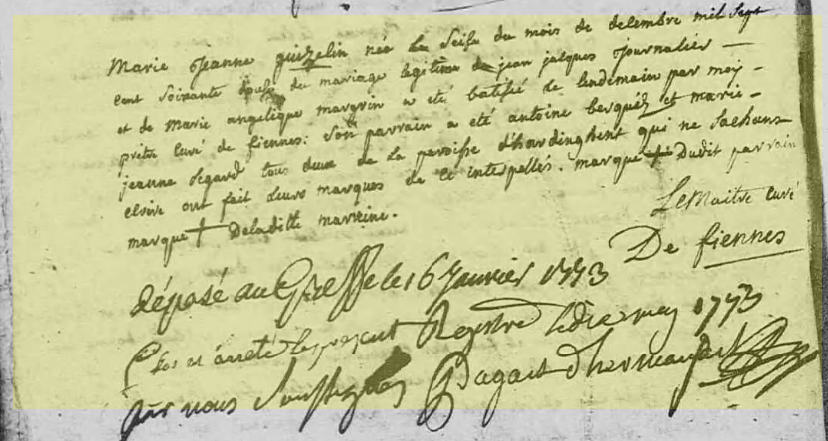 Marie Jeanne guizelin née le Seise du mois de decembre mil sept
cent soixante douse du mariage legitime de jean jacques journalier
et de Marie angelique margrin a été batisé le lendemain par moy
prêtre curé de fiennes: son parrain a été antoine berquez et marie
jeanne segard tous deux de la paroisse d'hardinghent qui ne sachans
ecrire ont fait leurs marques de ce interpellés. marque + Dudit parrain
marque + Deladitte marreine.
LeMaitre curé
De fiennes
déposé au Greffe le 16 Janvier 1773
Clos et arrêté le present Registre 1773
par nous Soussignés